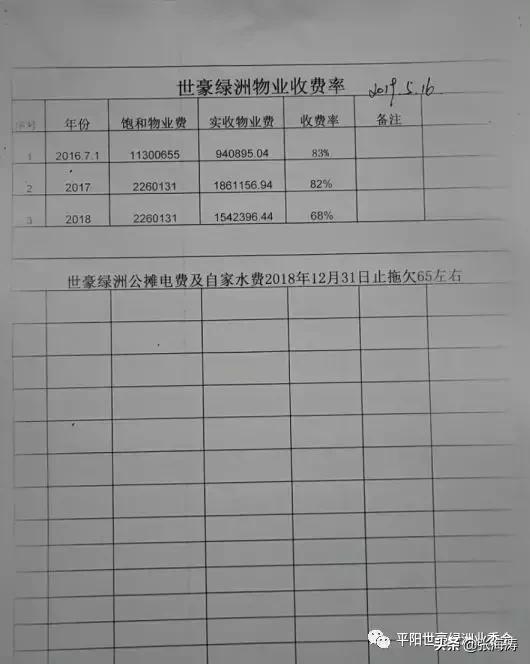 世豪绿洲物业收费率 2019.5.16
序号 年份 饱和物业费 实收物业费 收费率 备注
1 2016.7.1 11300655 940895.04 83%
2 2017 2260131 1861156.94 82%
3 2018 2260131 1542396.44 68%
世豪绿洲公摊电费及自家水费2018年12月31日止拖欠65左右
平阳世豪绿洲业委会
头条 @张海涛